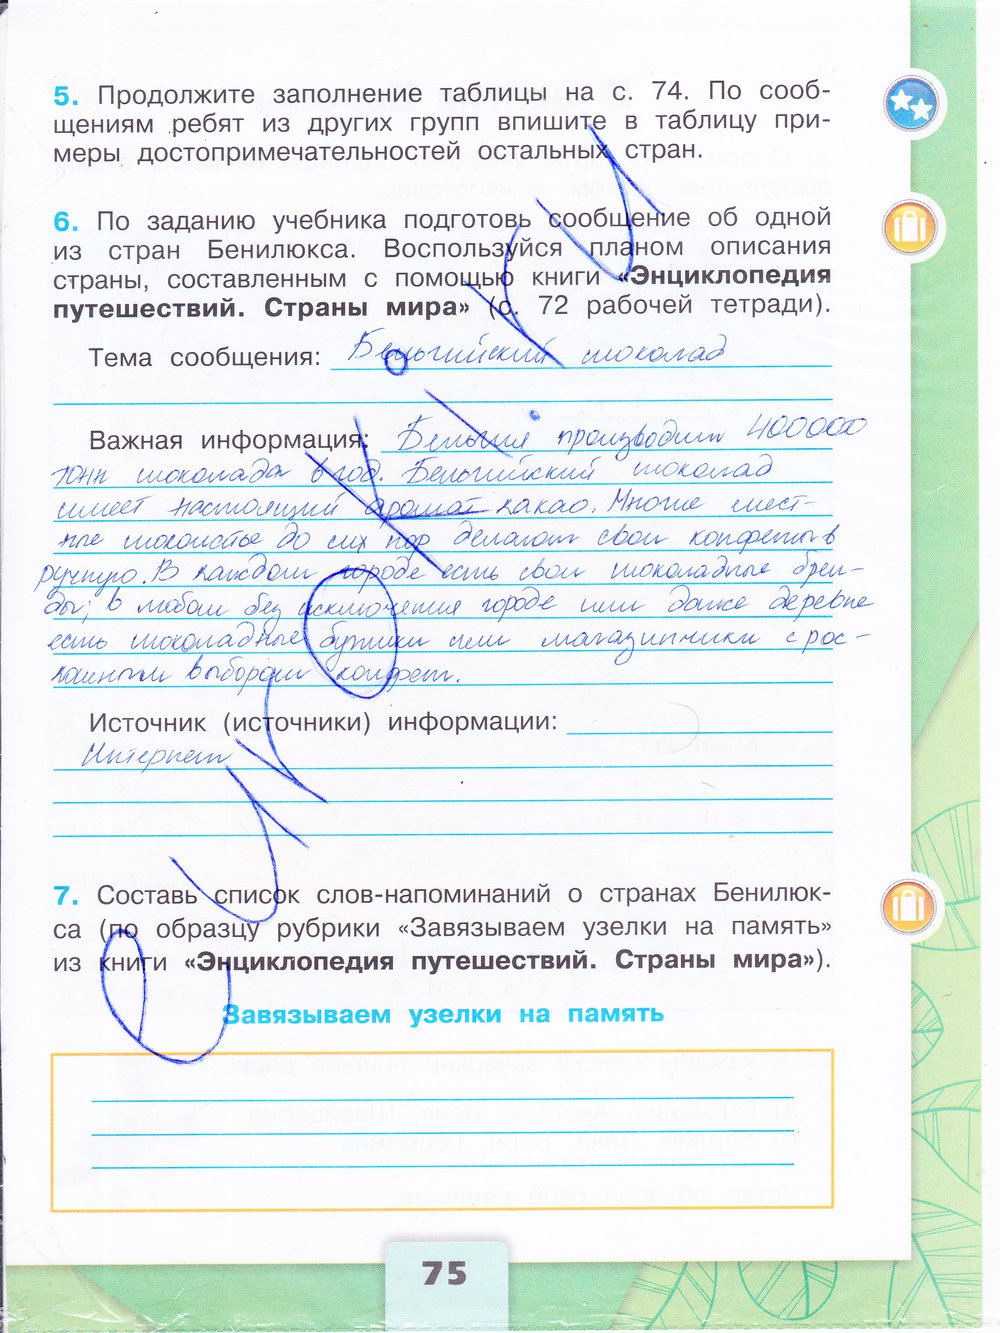 5. Продолжите заполнение таблицы на с. 74. По сооб-
щениям ребят из других групп впишите в таблицу при-
меры достопримечательностей остальных стран.
6. По заданию учебника подготовь сообщение об одной
из стран Бенилюкса. Воспользуйся планом описания
страны, составленным с помощью книги «Энциклопедия
путешествий. Страны мира» (с. 72 рабочей тетради).
Тема сообщения: Бельгийский шоколад
Важная информация: Бельгия производит 400000
тонн шоколада в год. Бельгийский шоколад
имеет настоящий аромат какао. Многие мест-
ные шоколатье до сих пор делают свои конфеты в
ручную. В каждом городе есть свои шоколадные брен-
ды; в любом без исключения городе или даже деревне
есть шоколадные бутики или магазинчики с рос-
кошным выбором конфет.
Источник (источники) информации:
Интернет
7. Составь список слов-напоминаний о странах Бенилюк-
са (по образцу рубрики «Завязываем узелки на память»
из книги «Энциклопедия путешествий. Страны мира»).
Завязываем узелки на память
75
euroki.ru